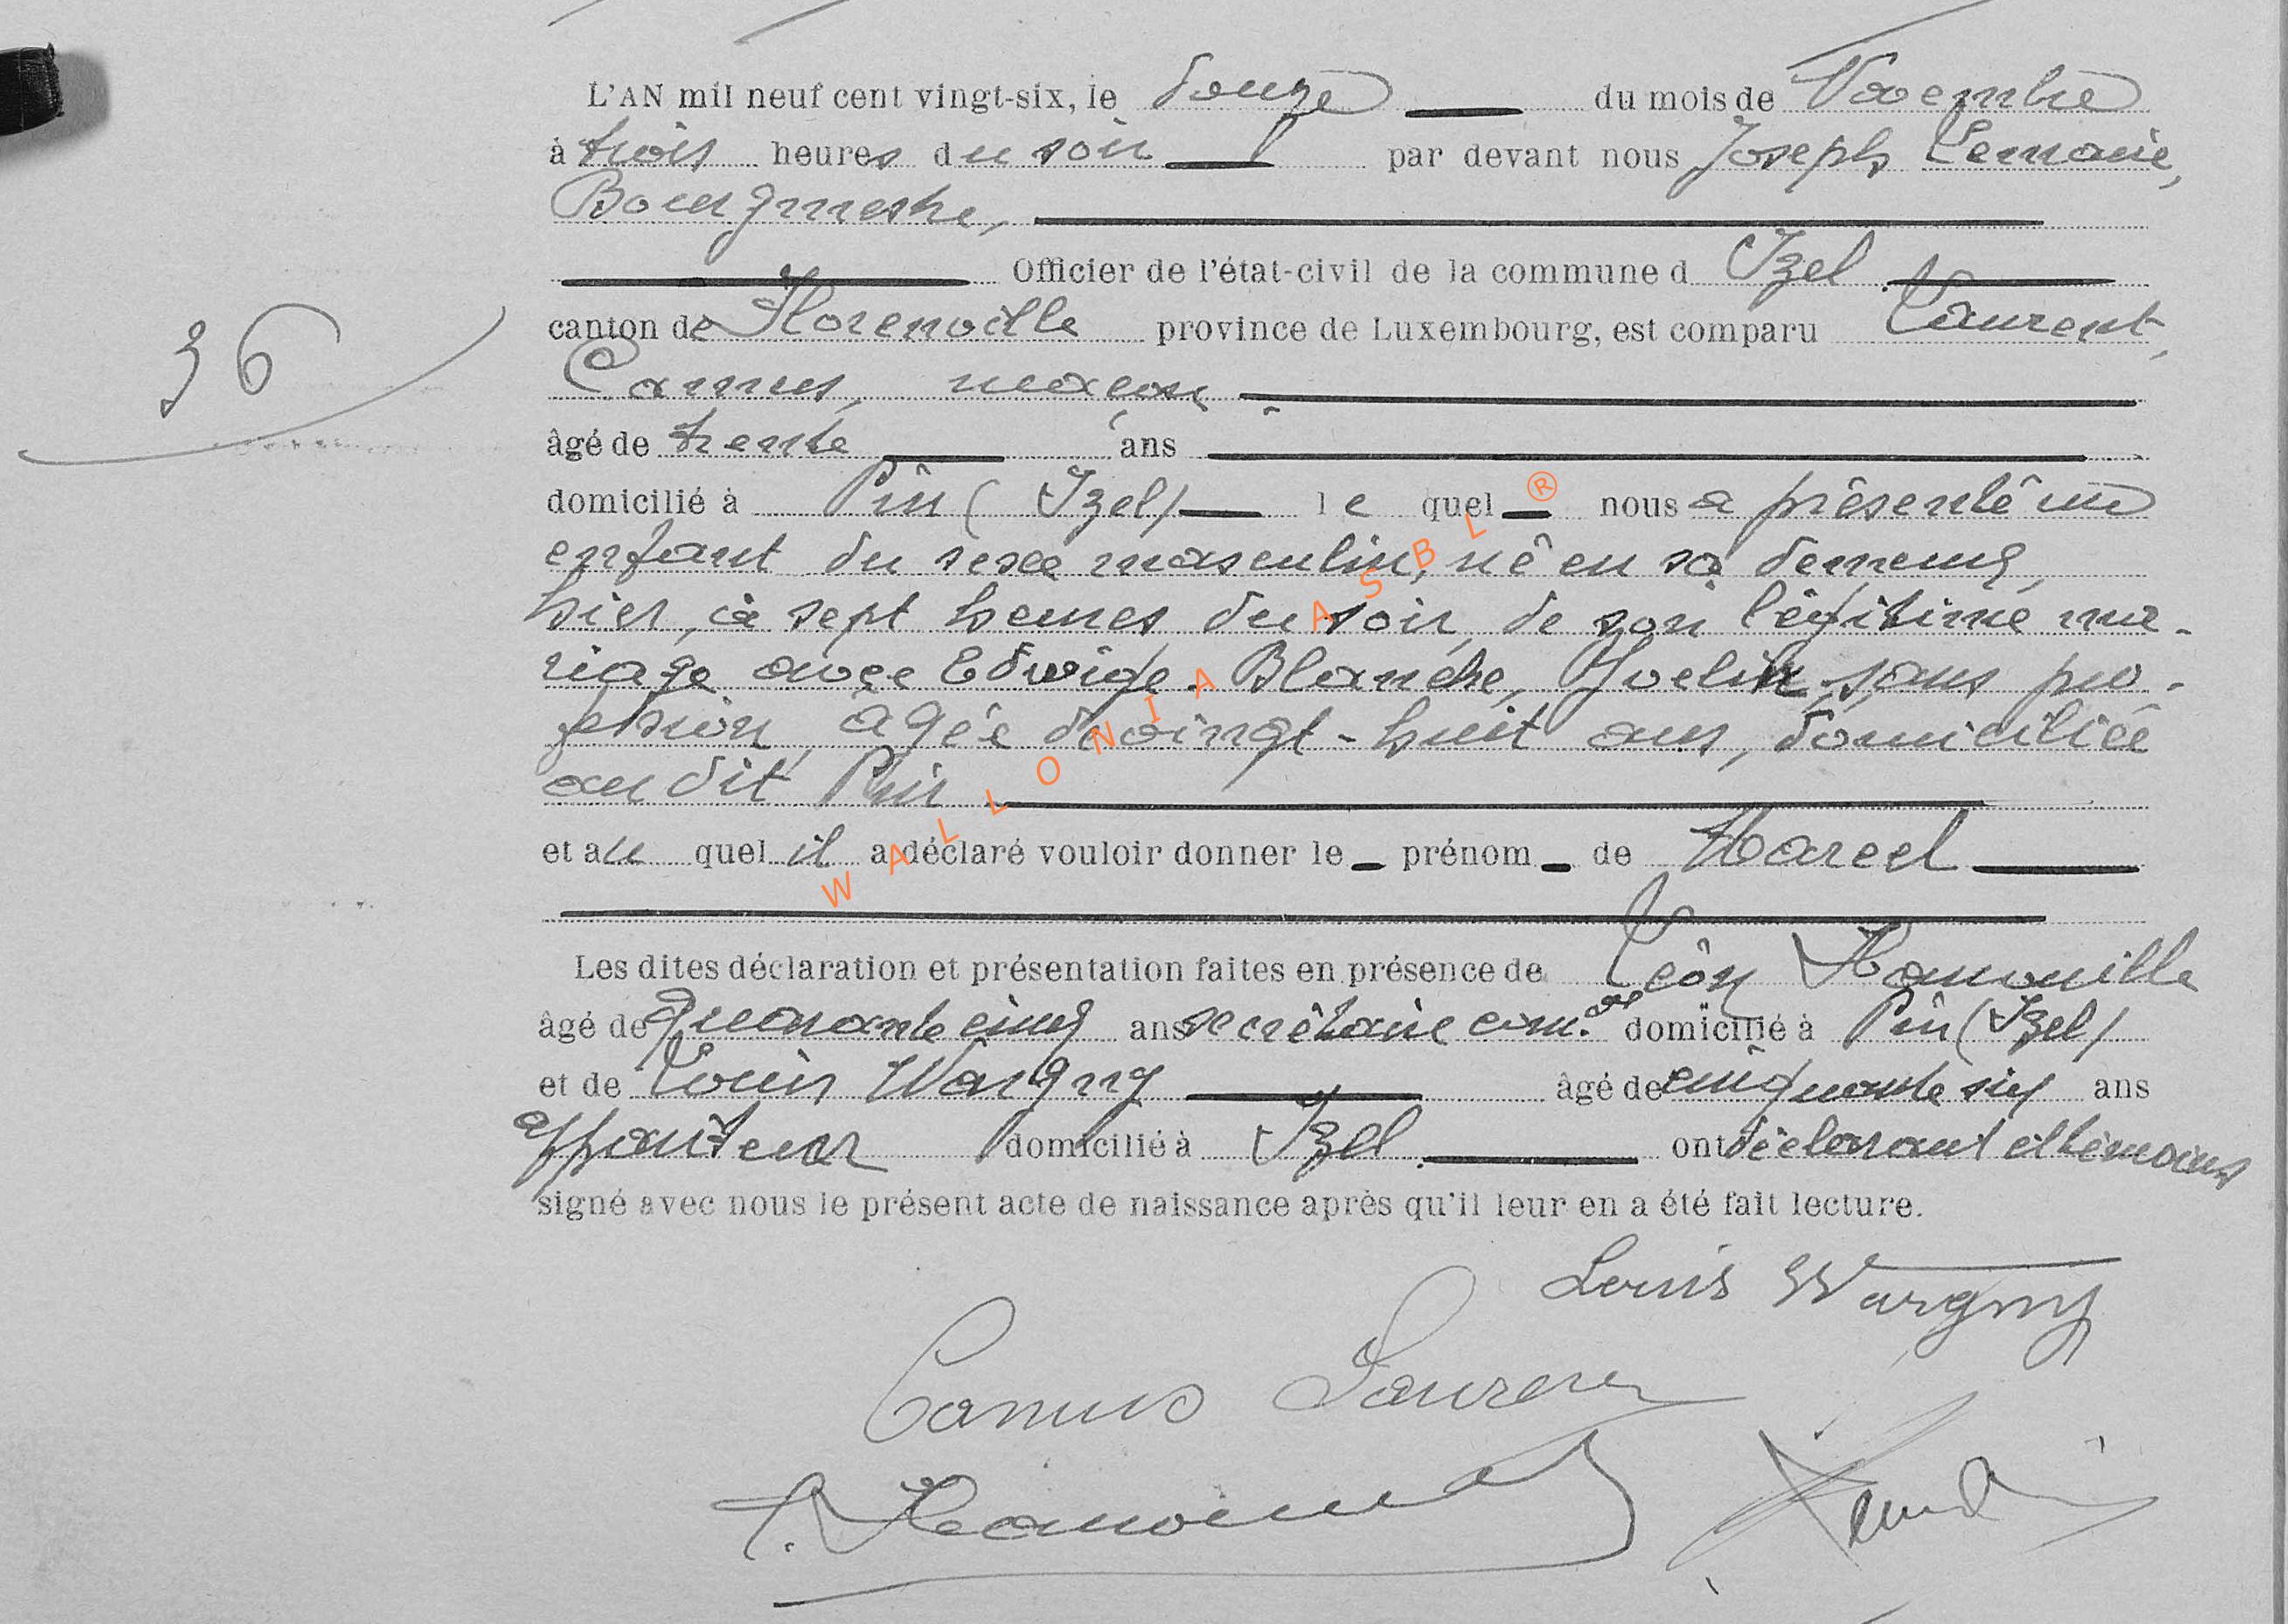 L'AN mil neuf cent vingt-six, le douze du mois de Novembre
à trois heures du soir par devant nous Joseph Lemaire,
Bourgmestre,
Officier de l'état-civil de la commune d Izel
canton de Florenville province de Luxembourg, est comparu Laurent,
36
Camus, maçon
âgé de trente ans
domicilié à Pin (Izel) le quel nous a présenté un
enfant du sexe masculin, né en sa demeure,
hier, à sept heures du soir, de son légitime ma-
riage avec Edwige Blanche, Yvelin, sans pro-
fession, âgée de vingt-huit ans, domiciliée
au dit Pin
et au quel il a déclaré vouloir donner le prénom de Marcel
WALLONIA ASBL ®
Les dites déclaration et présentation faites en présence de Léon
âgé de quarante cinq ans secrétaire com.al domicilié à Pin (Izel)
et de Louis Wargny âgé de cinquante six ans
appariteur domicilié à Izel ont déclarant et témoins
signé avec nous le présent acte de naissance après qu'il leur en a été fait lecture.
Louis Wargny
Camus Laurent